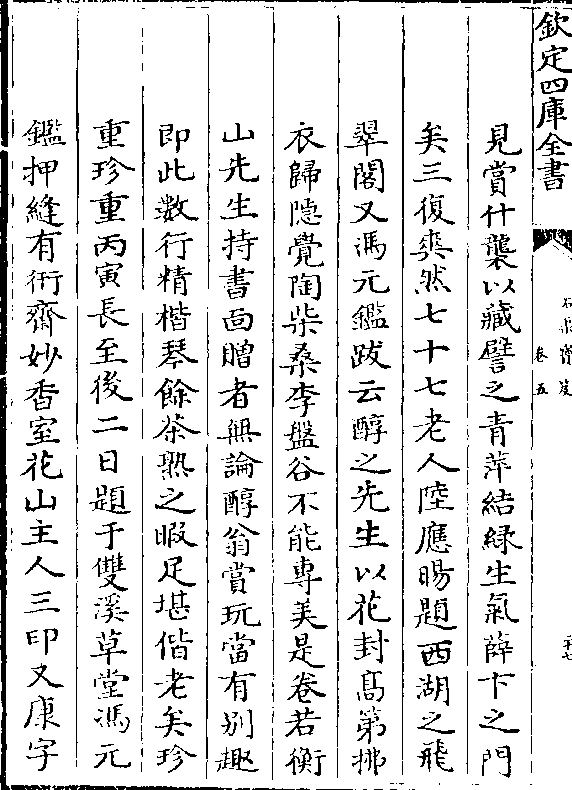 欽定四庫全書
石渠寶笈
卷五
見賞什襲以藏譬之青萍結緑生氣薛卞之門
矣三復爽然七十七老人陸應暘題西湖之飛
翠閣又馮元鑑跋云醇之先生以花封髙第拂
衣歸隠覺陶柴桑李盤谷不能專美是卷若衡
山先生持書面贈者無論醇翁賞玩當有别趣
即此數行精楷琴餘茶熟之暇足堪偕老矣珍
重珍重丙寅長至後二日題于雙溪草堂馮元
鑑押縫有術齋妙香室花山主人三印又康字